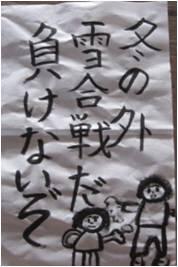 冬の外
雪合戦だ
負けないぞ